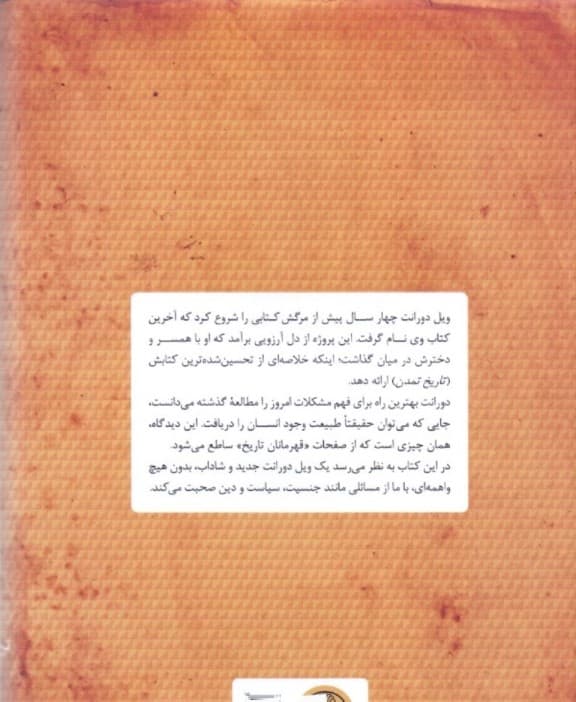 ویل دورانت چهار ســال پیش از مرگش کتابی را شروع کرد که آخرین
کتاب وی نــام گرفت. این پروژه از دل آرزویی برآمد که او با همســر و
دخترش در میان گذاشت؛ اینکه خلاصه‌ای از تحسین‌شده‌ترین کتابش
(تاریخ تمدن) ارائه دهد.
دورانت بهترین راه برای فهم مشکلات امروز را مطالعهٔ گذشته می‌دانست،
جایی که می‌توان حقیقتاً طبیعت وجود انســان را دریافت. این دیدگاه،
همان چیزی است که از صفحات «قهرمانان تاریخ» ساطع می‌شود.
در این کتاب به نظر می‌رسد یک ویل دورانت جدید و شاداب، بدون هیچ
واهمه‌ای، با ما از مسائلی مانند جنسیت، سیاست و دین صحبت می‌کند.